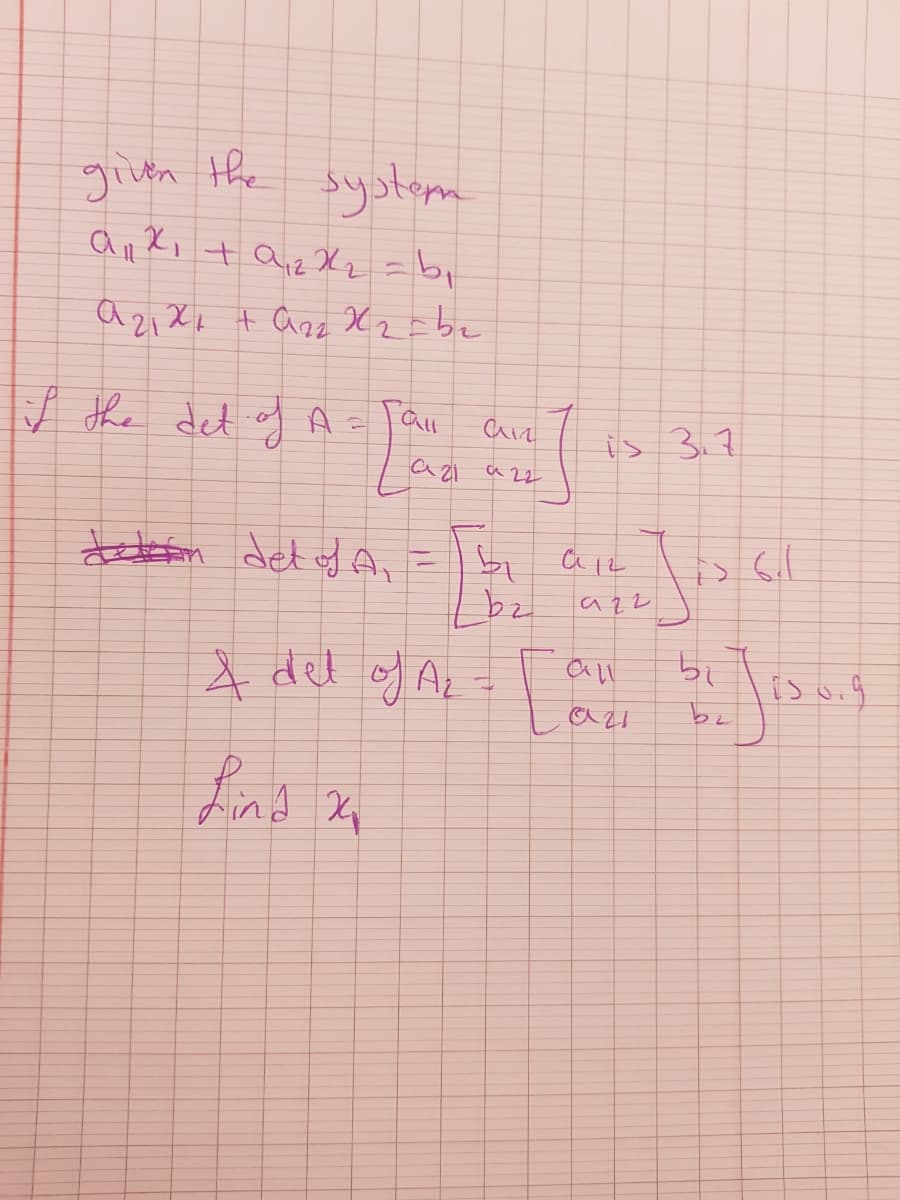 given the system
a₁₁x₁ + a₁₂x₂ = b₁
a₂₁x₁ + a₂₂x₂ = b₂
if the det of A = [a₁₁ a₁₂
a₂₁ a₂₂] is 3.7
det of A₁ = [b₁ a₁₂
b₂ a₂₂] is 6.1
& det of A₂ = [a₁₁ b₁
a₂₁ b₂] is 0.9
find x₁